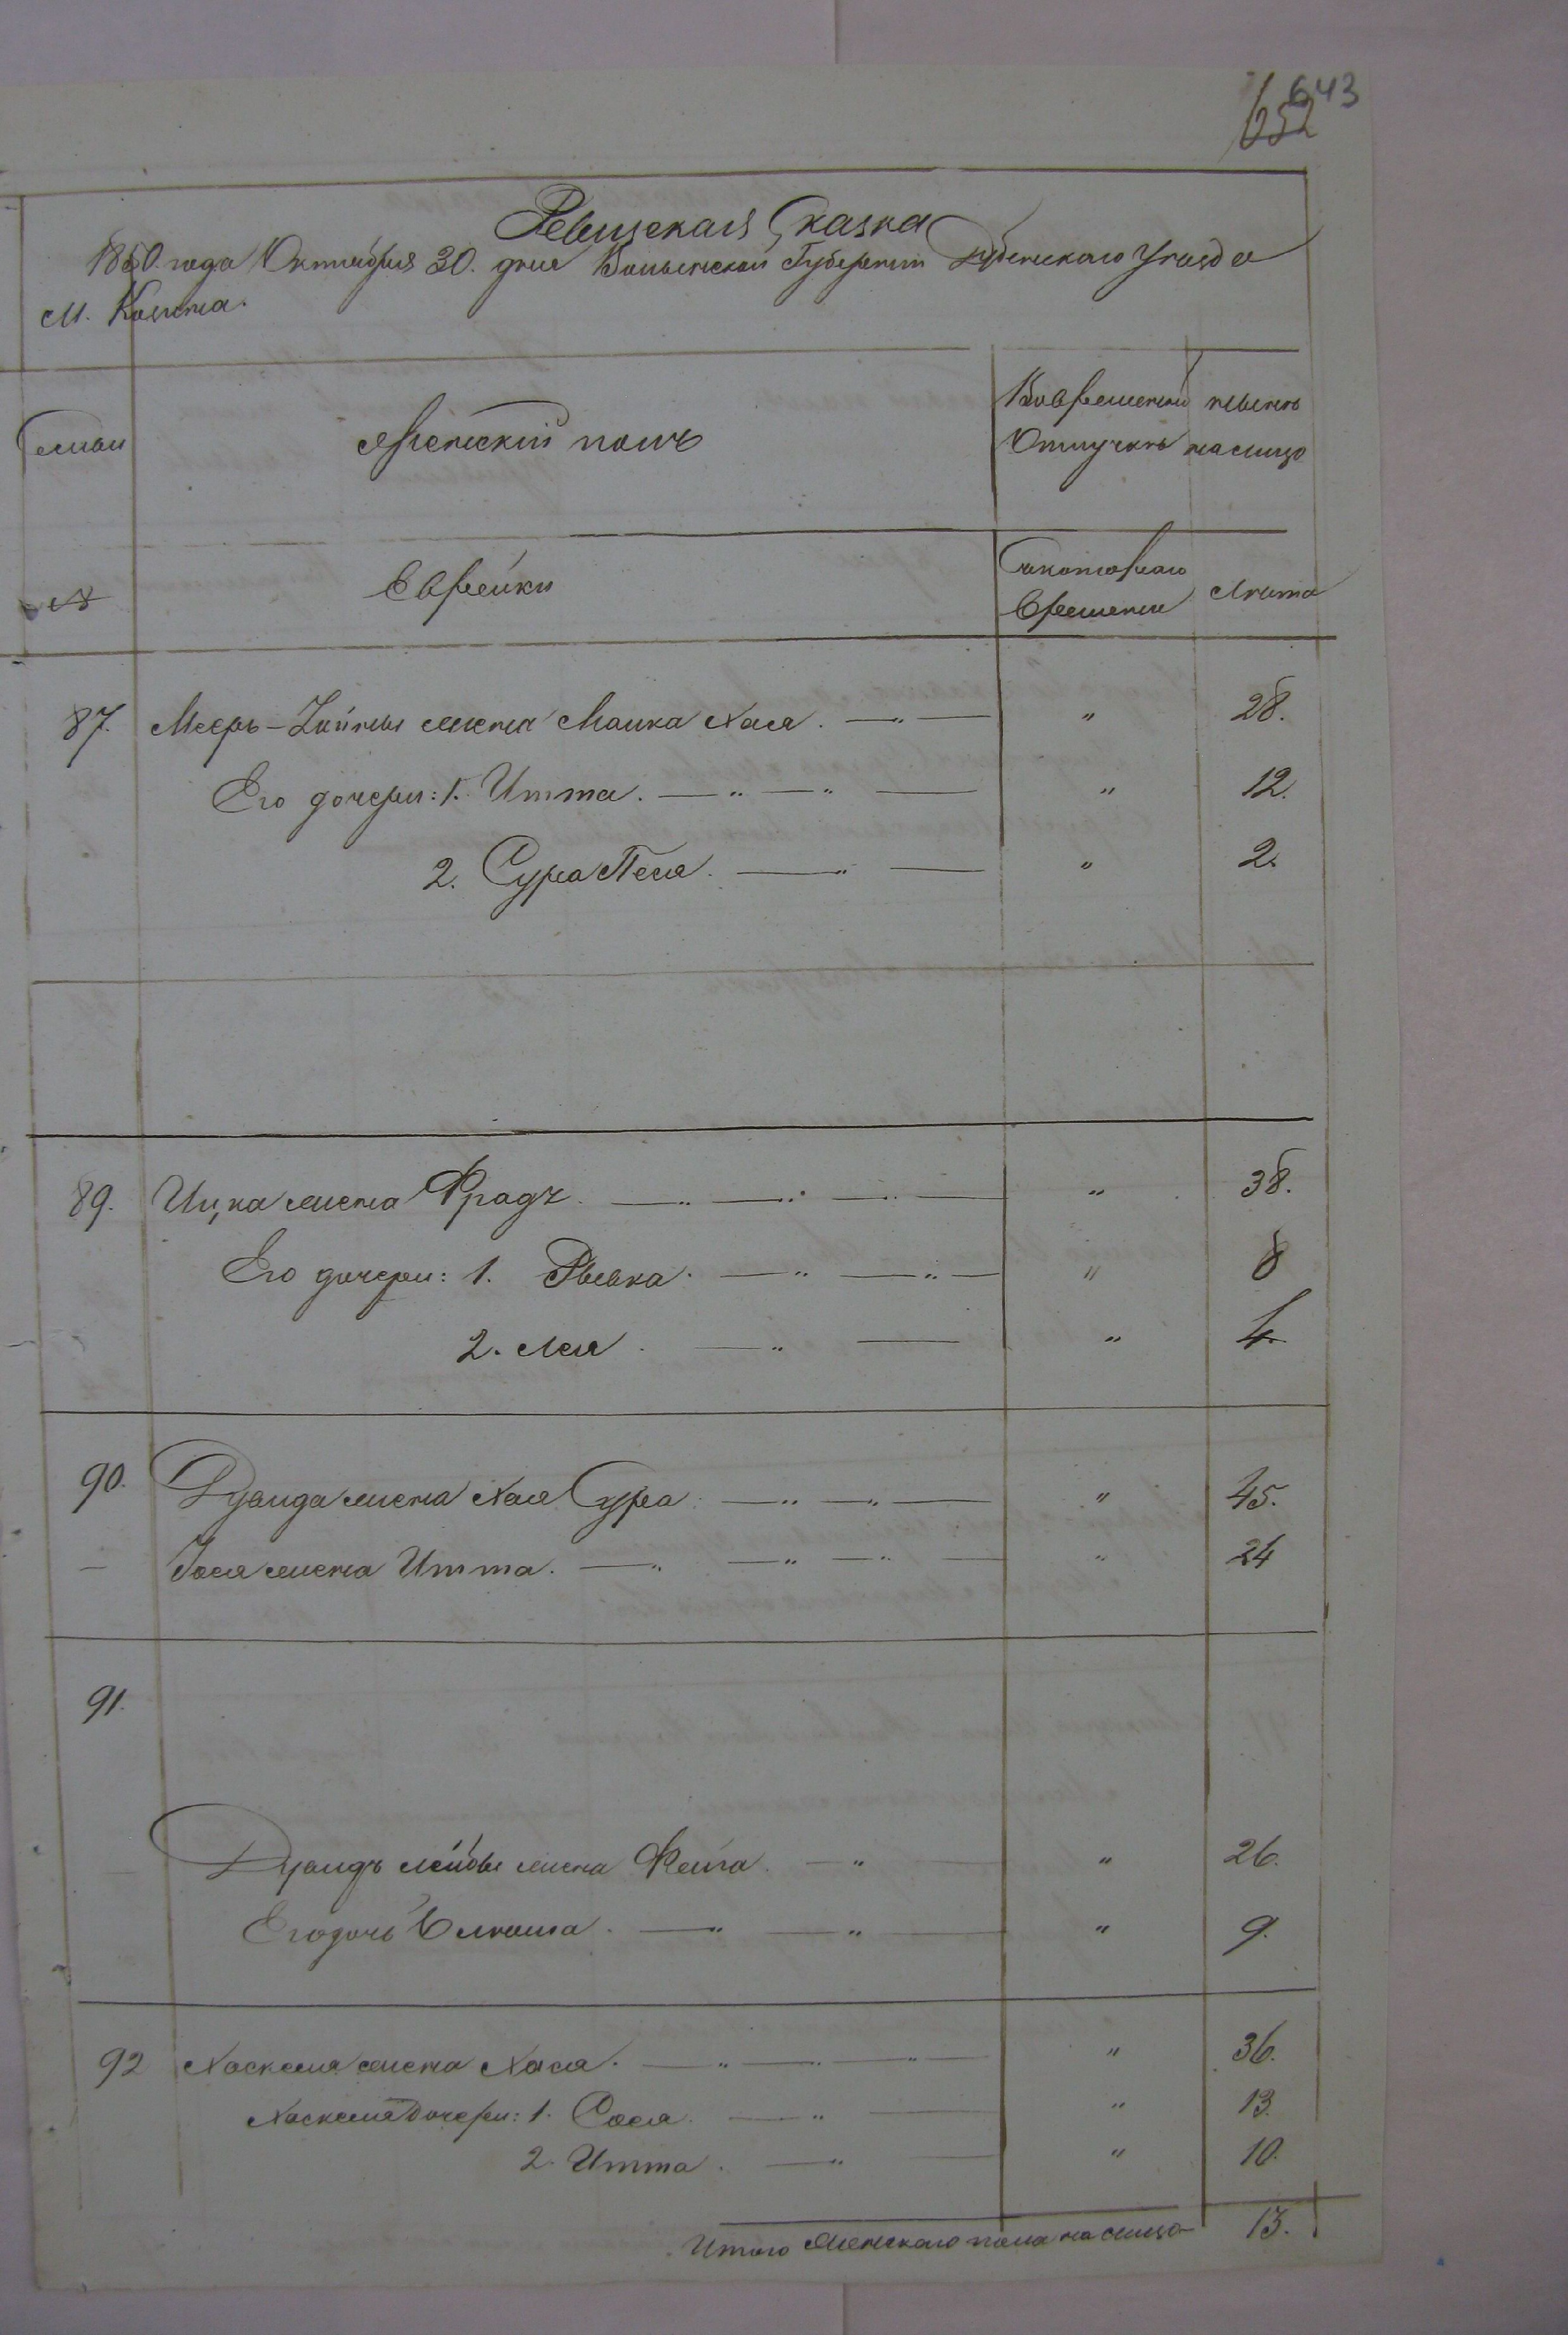 643
652
Ревизская Сказка
1850. года Октября 30. дня Волынской Губернии Дубенскаго Уезда
М. Козина.
Семьи Женский полъ Во временной отлучкѣ нынѣ на лицо
№ Еврейки Съ котораго времени Лѣта
87. Мееръ-Зейлы жена Малка Хася. — " — " 28.
Его дочери: 1. Итта. — " — " — " 12.
2. Сура Песя. — " — " 2.
89. Ицка жена Фрадъ. — " — " — " — " 38.
Его дочери: 1. Рывка. — " — " — " 8
2. Лея. — " — " 4.
90. Дувида жена Хая Сура. — " — " — " 45.
— Иося жена Итта. — " — " — " — " 24
91.
Дувидъ Лейбы жена Фейга. — " — " 26.
Его дочь — " — " — " 9.
92 Хаскеля жена Хася. — " — " — " — " 36.
Хаскеля дочери: 1. Сося. — " — " 13.
2. Итта. — " — " 10.
Итого женскаго пола на лицо 13.